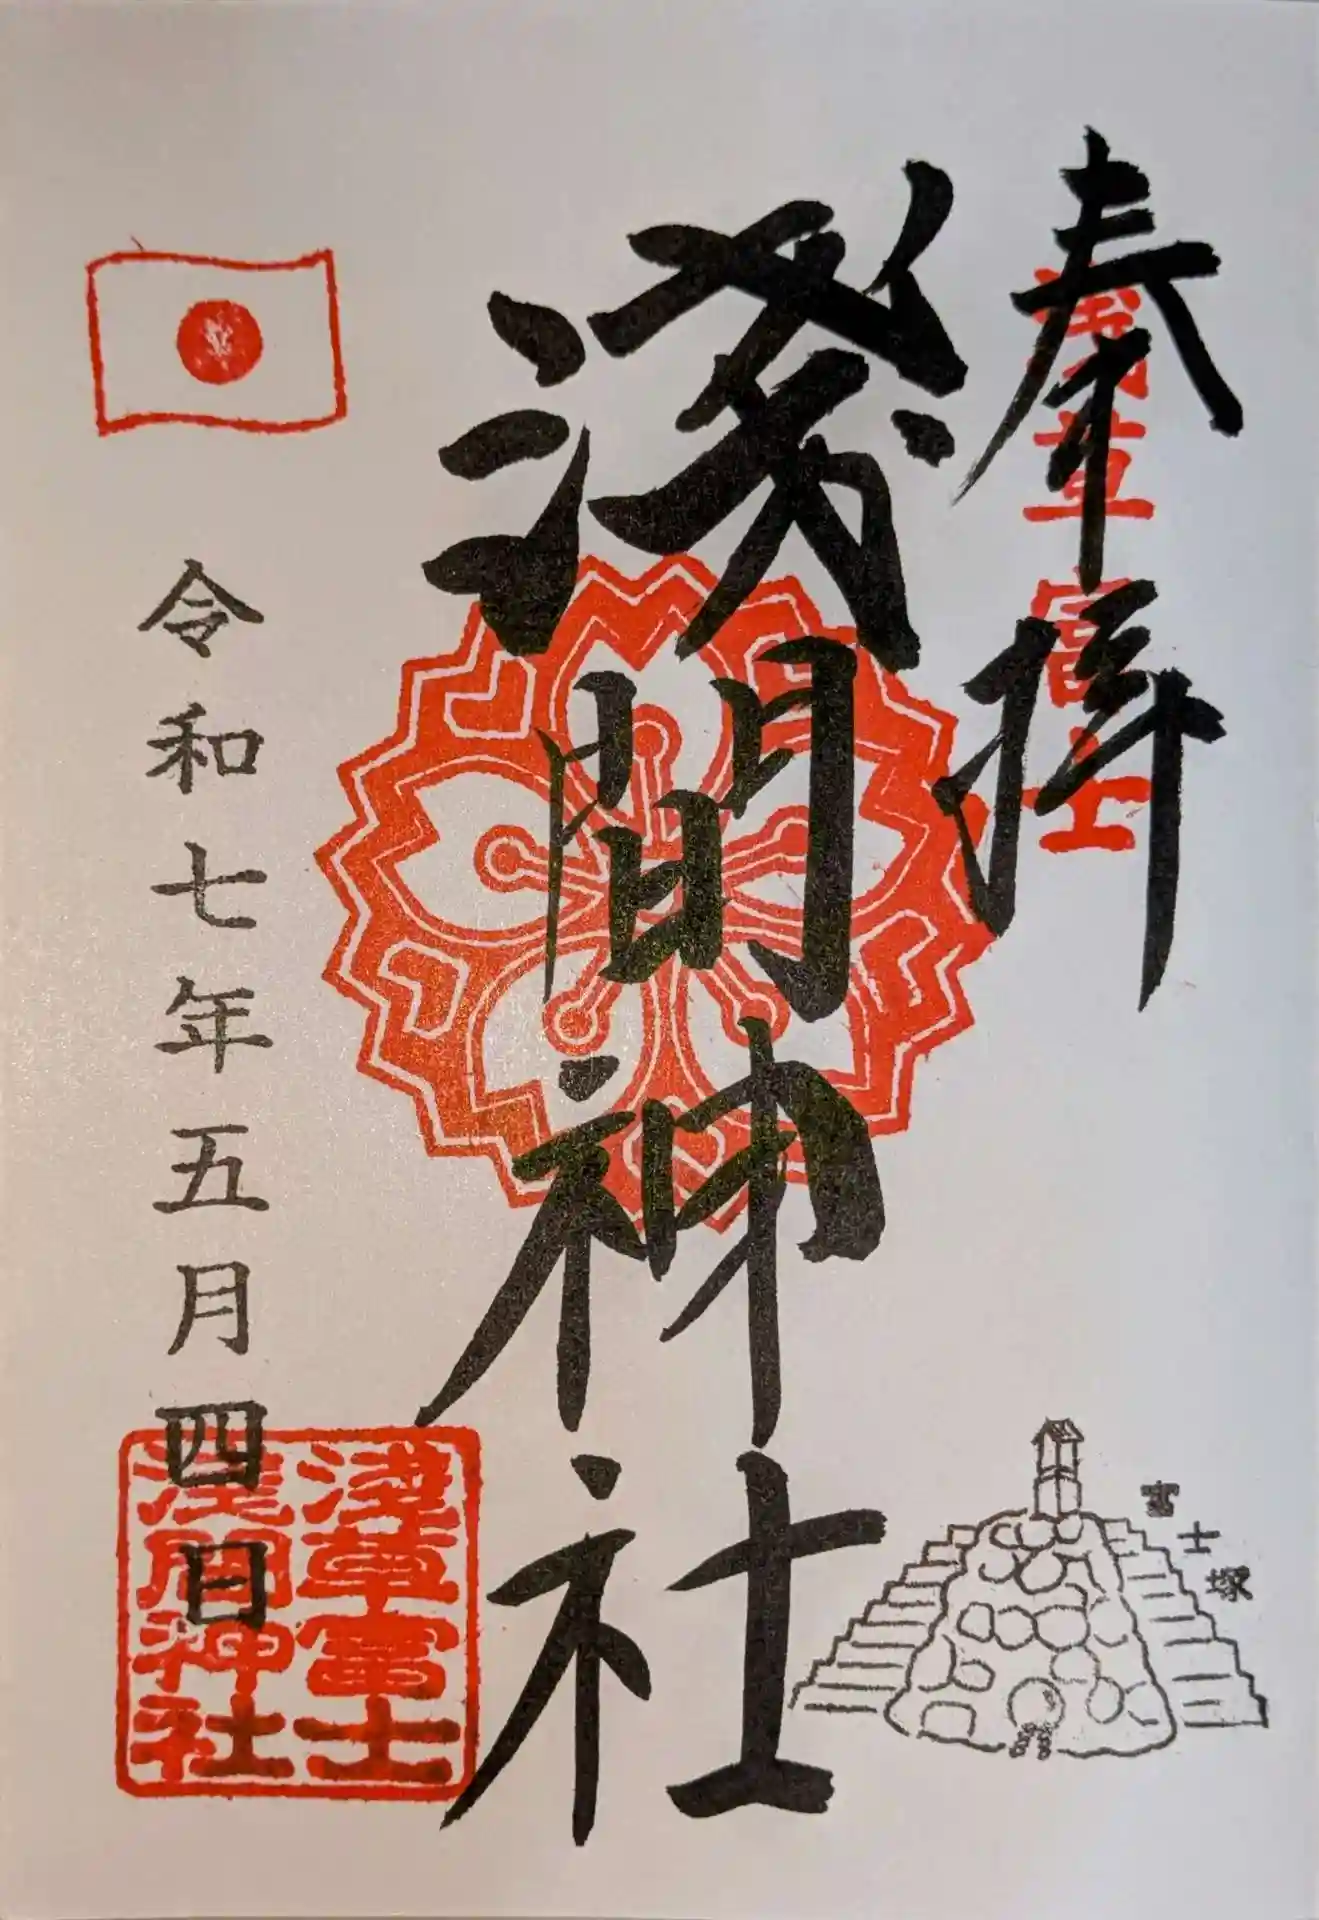 奉拝
浅草富士
淺間神社
令和七年五月四日
淺草富士
浅間神社
富士塚